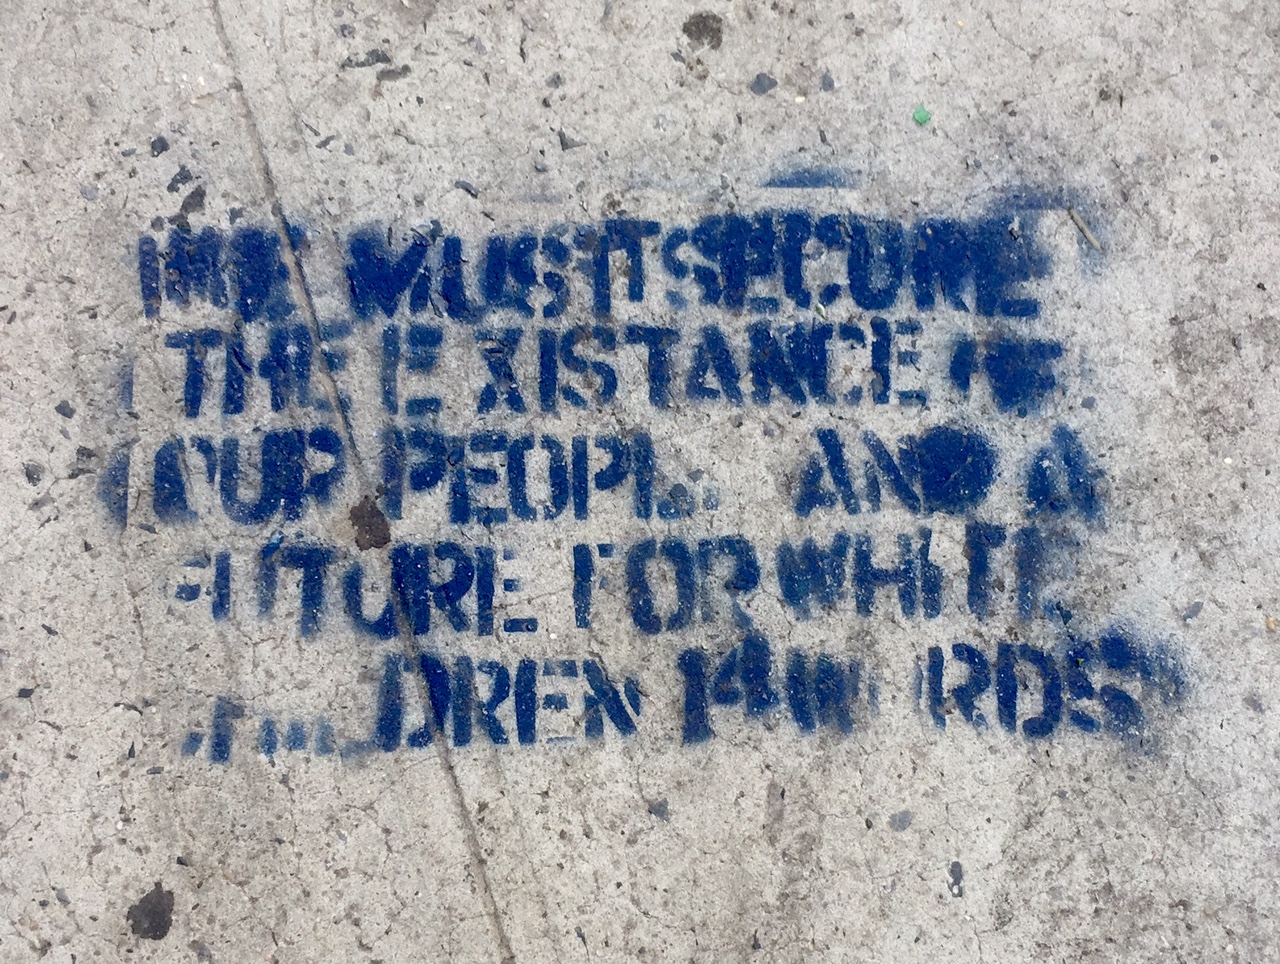 WE MUST SECURE
THE EXISTANCE OF
OUR PEOPLE AND A
FUTURE FOR WHITE
CHILDREN 14 WORDS